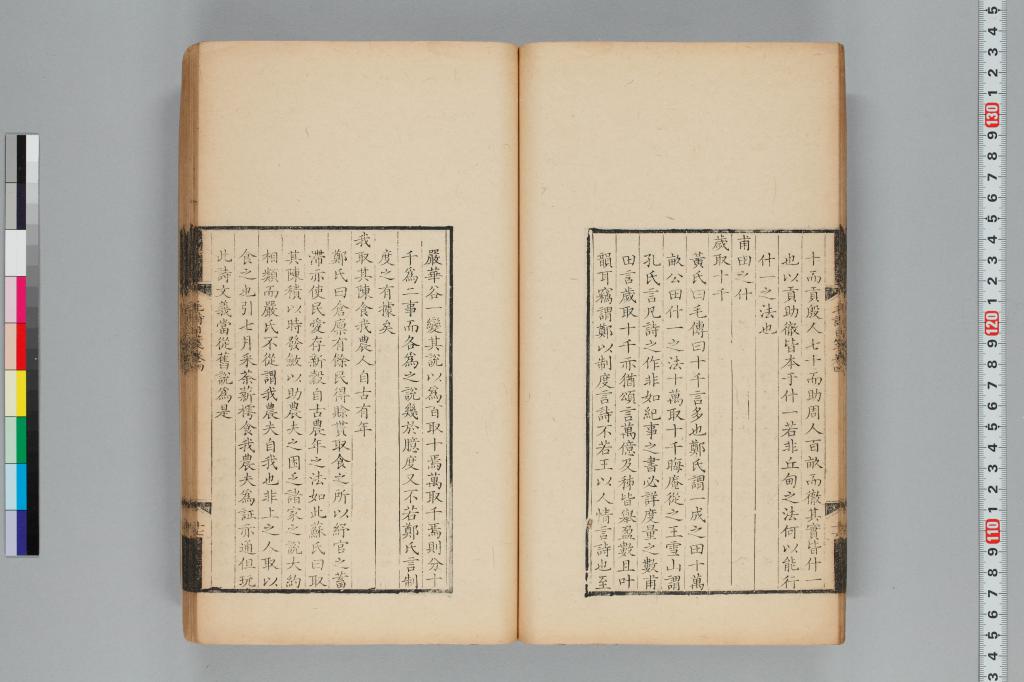 十而貢殷人七十而助周人百畝而徹其實皆什一
也以貢助徹皆本于什一若非丘甸之法何以能行
什一之法也
甫田之什
歲取十千
黃氏曰毛傳曰十千言多也鄭氏謂一成之田十萬
畝公田什一之法十萬取十千晦庵從之王雪山謂
孔氏言凡詩之作非如紀事之書必詳度量之數甫
田言歲取十千亦猶頌言萬億及秭皆舉盈數且叶
韻耳竊謂鄭以制度言詩不若王以人情言詩也至
嚴華谷一變其說以為百取十焉萬取千焉則分十
千為二事而各為之說幾於臆度又不若鄭氏言制
度之有據矣
我取其陳食我農人自古有年
鄭氏曰倉廩有餘民得賖貰取食之所以紓官之蓄
滯亦使民愛存新穀自古農年之法如此蘇氏曰取
其陳積以時發斂以助農夫之困乏諸家之說大約
相類而嚴氏不從謂我農夫自我也非上之人取以
食之也引七月采荼薪樗食我農夫為証亦通但玩
此詩文義當從舊說為是
十七